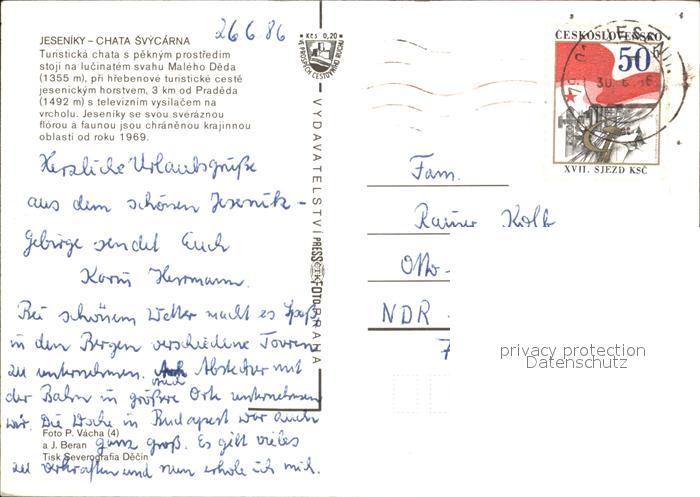 26.6.86
JESENÍKY – CHATA ŠVÝCÁRNA
Turistická chata s pěkným prostředím
stojí na lučinatém svahu Malého Děda
(1355 m), při hřebenové turistické cestě
jesenickým horstvem, 3 km od Praděda
(1492 m) s televizním vysílačem na
vrcholu. Jeseníky se svou svéráznou
flórou a faunou jsou chráněnou krajinnou
oblastí od roku 1969.
Herzliche Urlaubsgrüße
aus dem schönen Jesenik-
Gebirge sendet Euch
Karin Herrmann.
Bei schönem Wetter macht es Spaß,
in den Bergen verschiedene Touren
zu unternehmen. Auch Abstecher mit
der Bahn in größere Orte unternehmen
wir. Die Woche in Budapest war auch
ganz groß. Es gibt vieles
zu verkraften und nun erhole ich mich.
Foto P. Vácha (4)
a J. Beran
Tisk Severografia Děčín
Kčs 0,20
VE PROSPĚCH CESTOVNÍHO RUCHU
VYDAVATELSTVÍ PRESSFOTO PRAHA
ČESKOSLOVENSKO
50
XVII. SJEZD KSČ
Fam.
Rainer Kolb
Otto-
NDR
7
privacy protection
Datenschutz